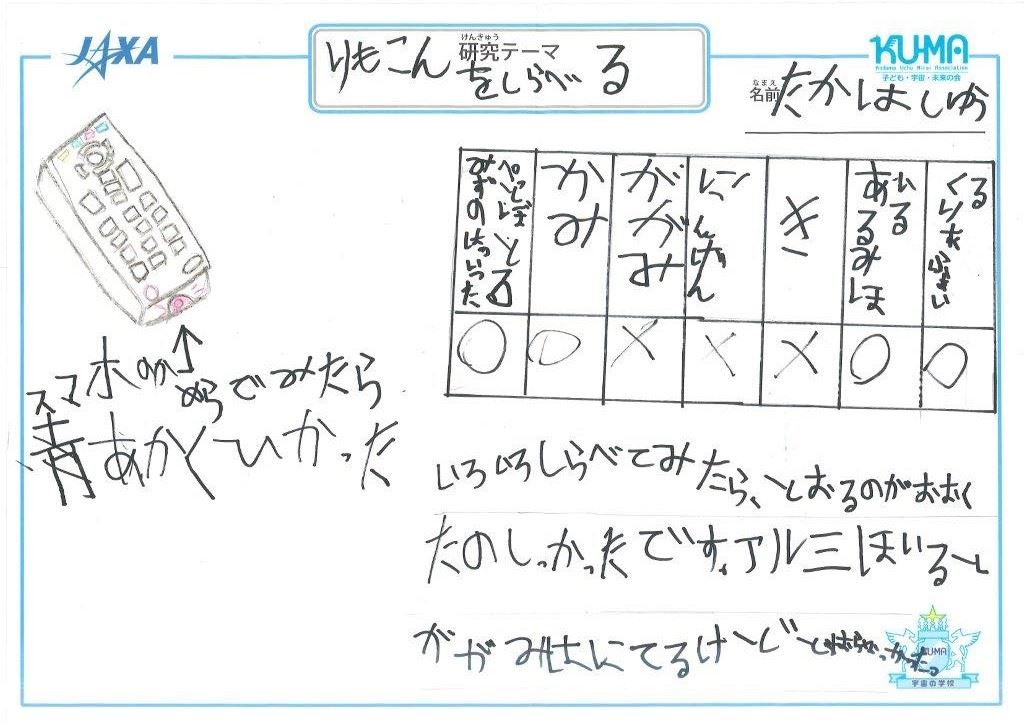 JAXA
けんきゅう
研究テーマ
りもこん
をしらべる
KU-MA
Kodomo Uchu Mirai Association
子ども・宇宙・未来の会
なまえ
名前 たかはしゆう
ぺっとぼとる
みずのはいった
かみ
ががみ
にんげん
き
ある
みほ
くりあ
○ ○ × × × ○ ○
スマホのか
めらでみたら
青あかくひかった
いろいろしらべてみたら、とおるのがおおく
たのしかったです。アルミほいるーと
ががみはにてるけーど
KU-MA
宇宙の学校